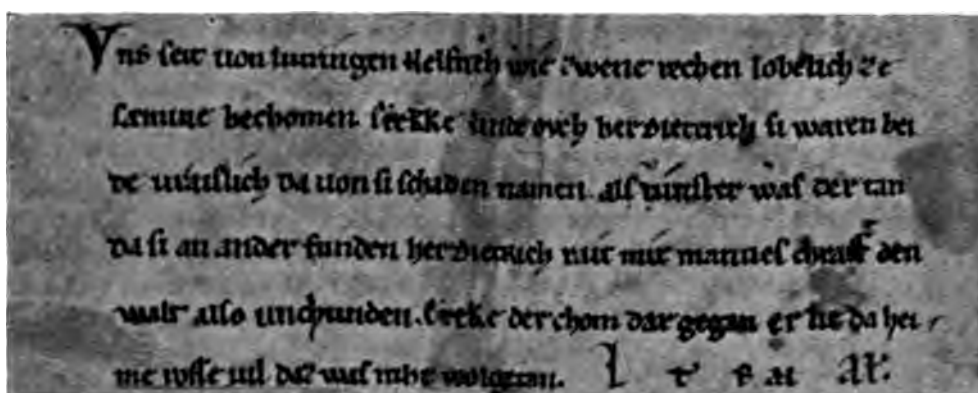 Uns seit uon lutringen helfrich wie zwene rechen lobelich ze
samine bechomen. Ekke unde ovch her dieterich si waren bei
de uraislich da uon si schaden namen. als uinster was der tan
da si an ander funden her dieterich rait mit mannes chraft den
walt also unchunden. Ereke der chom dar gegan er lie da hei
me rosse uil daz was niht wolgetan.